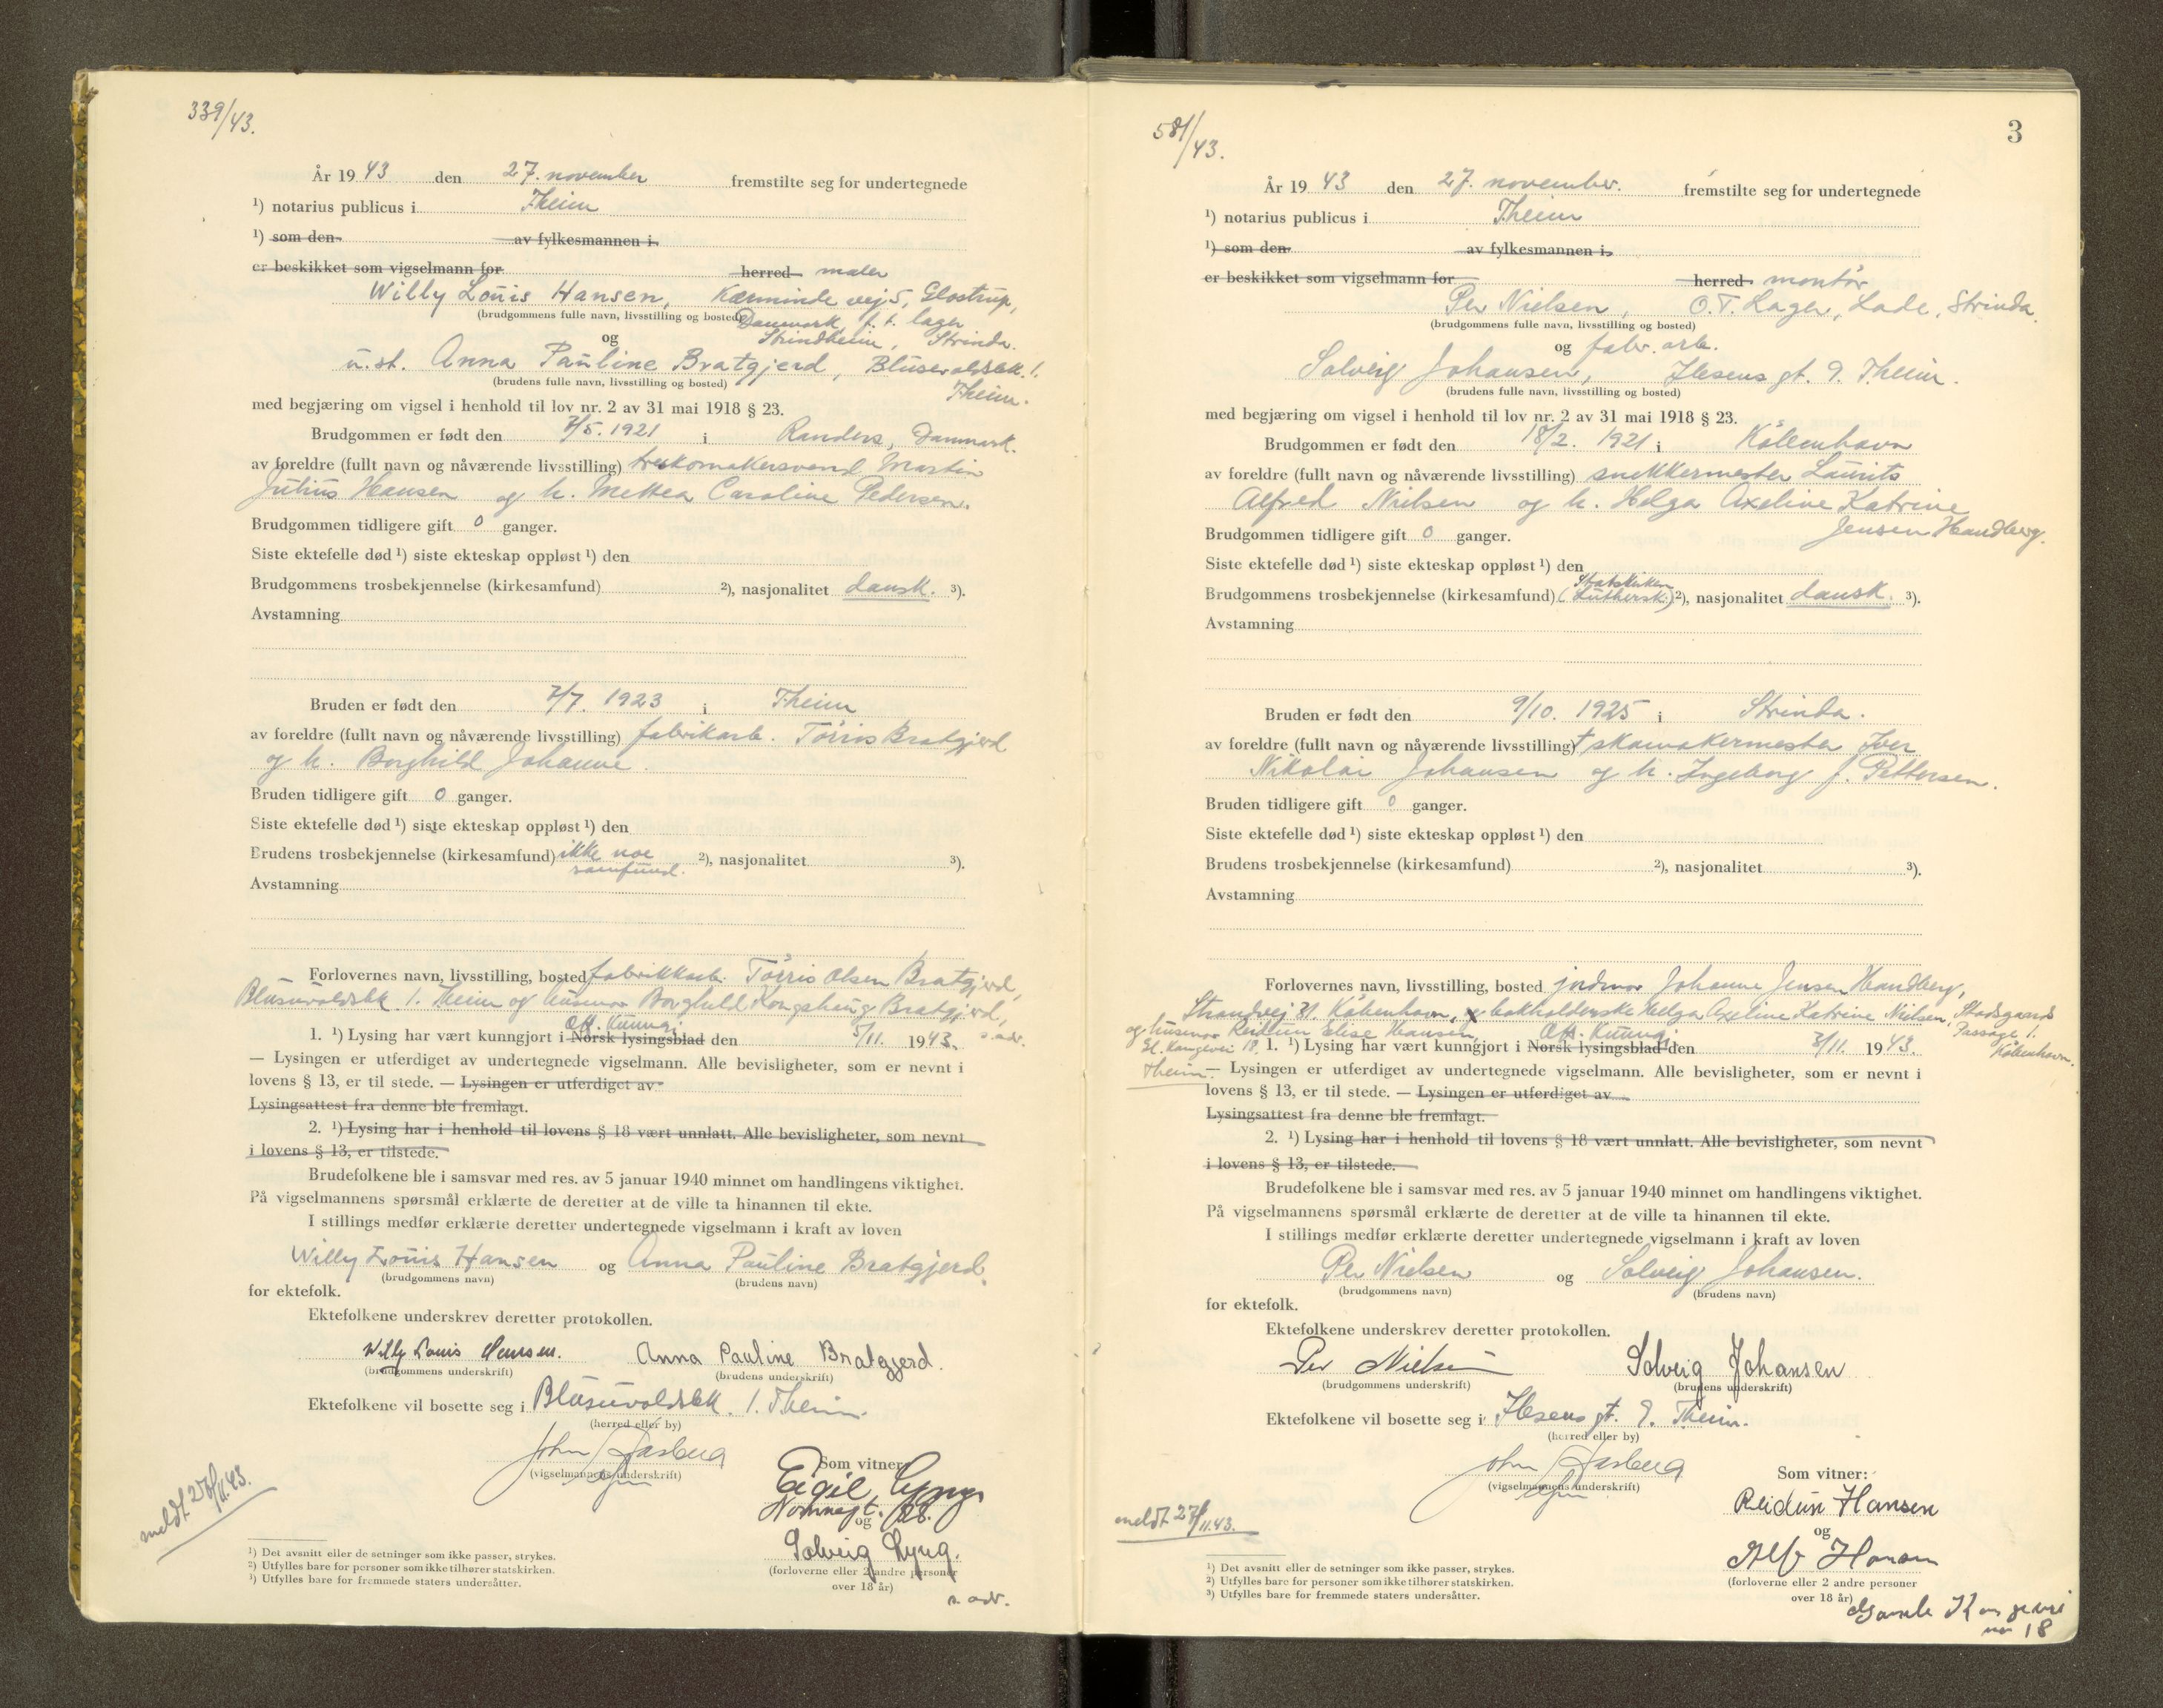 339/43.
År 1943 den 27. november fremstilte seg for undertegnede
1) notarius publicus i Theim
1) som den av fylkesmannen i
er beskikket som vigselmann for herred maler
Willy Louis Hansen, Kærminde vej 5, Glostrup,
(brudgommens fulle navn, livsstilling og bosted)
Danmark, f. t. lager
Strindheim, Strinda.
og
u.st. Anna Pauline Bratgjerd, Blusuvoldsbk. 1.
(brudens fulle navn, livsstilling og bosted)
Theim.
med begjæring om vigsel i henhold til lov nr. 2 av 31 mai 1918 § 23.
Brudgommen er født den 7/5. 1921 i Randers, Danmark.
av foreldre (fullt navn og nåværende livsstilling) treskomakersvend Martin
Julius Hansen og h. Mettea Caroline Pedersen.
Brudgommen tidligere gift 0 ganger.
Siste ektefelle død 1) siste ekteskap oppløst 1) den
Brudgommens trosbekjennelse (kirkesamfund) 2), nasjonalitet dansk. 3).
Avstamning
Bruden er født den 7/7. 1923 i Theim
av foreldre (fullt navn og nåværende livsstilling) fabrikarb. Törris Bratgjerd
og h. Borghild Johanne.
Bruden tidligere gift 0 ganger.
Siste ektefelle død 1) siste ekteskap oppløst 1) den
Brudens trosbekjennelse (kirkesamfund) ikke noe 2), nasjonalitet 3).
samfund.
Avstamning
Forlovernes navn, livsstilling, bosted fabrikkarb. Törris Olsen Bratgjerd,
Blusuvoldsbk 1. Theim og husmor Borghild Kongshaug Bratgjerd,
s. adr.
Off. Kunngj.
1. 1) Lysing har vært kunngjort i Norsk lysingsblad den 5/11. 1943.
— Lysingen er utferdiget av undertegnede vigselmann. Alle bevisligheter, som er nevnt i
lovens § 13, er til stede. — Lysingen er utferdiget av
Lysingsattest fra denne ble fremlagt.
2. 1) Lysing har i henhold til lovens § 18 vært unnlatt. Alle bevisligheter, som nevnt
i lovens § 13, er tilstede.
Brudefolkene ble i samsvar med res. av 5 januar 1940 minnet om handlingens viktighet.
På vigselmannens spørsmål erklærte de deretter at de ville ta hinannen til ekte.
I stillings medfør erklærte deretter undertegnede vigselmann i kraft av loven
Willy Louis Hansen og Anna Pauline Bratgjerd.
(brudgommens navn) (brudens navn)
for ektefolk.
Ektefolkene underskrev deretter protokollen.
Willy Louis Hansen. Anna Pauline Bratgjerd.
(brudgommens underskrift) (brudens underskrift)
Ektefolkene vil bosette seg i Blusuvoldsbk. 1. Theim.
(herred eller by)
John Aasberg
(vigselmannens underskrift)
Som vitner:
Eigil Lyng
og
Solveig Lyng.
(forloverne eller 2 andre personer
over 18 år)
s. adr.
meldt 27/11.43.
1) Det avsnitt eller de setninger som ikke passer, strykes.
2) Utfylles bare for personer som ikke tilhører statskirken.
3) Utfylles bare for fremmede staters undersåtter.
581/43.
3
År 1943 den 27. november. fremstilte seg for undertegnede
1) notarius publicus i Theim
1) som den av fylkesmannen i
er beskikket som vigselmann for herred montör
Per Nielsen, O.T. Lager, Lade, Strinda.
(brudgommens fulle navn, livsstilling og bosted)
og fabr. arb.
Solveig Johansen, Ilsens gt. 9. Theim.
(brudens fulle navn, livsstilling og bosted)
med begjæring om vigsel i henhold til lov nr. 2 av 31 mai 1918 § 23.
Brudgommen er født den 18/2. 1921 i Köbenhavn
av foreldre (fullt navn og nåværende livsstilling) snekkermester Laurits
Alfred Nielsen og h. Helga Axeline Katrine
Jensen Handberg.
Brudgommen tidligere gift 0 ganger.
Siste ektefelle død 1) siste ekteskap oppløst 1) den
Statskirken
Brudgommens trosbekjennelse (kirkesamfund) (Luthersk) 2), nasjonalitet dansk. 3).
Avstamning
Bruden er født den 9/10. 1925 i Strinda.
av foreldre (fullt navn og nåværende livsstilling) † skomakermester Iver
Nikolai Johansen og h. Ingeborg f. Pettersen.
Bruden tidligere gift 0 ganger.
Siste ektefelle død 1) siste ekteskap oppløst 1) den
Brudens trosbekjennelse (kirkesamfund) 2), nasjonalitet 3).
Avstamning
Forlovernes navn, livsstilling, bosted jordmor Johanne Jensen Handberg,
Strandvej 31. Köbenhavn, bokholderske Helga Axeline Katrine Nielsen, Stadsgaards
Passage 1.
Köbenhavn.
og husmor Reidun Elise Hansen,
Gl. Kongevei 18.
Theim.
Off. Kunngj.
1. 1) Lysing har vært kunngjort i Norsk lysingsblad den 2/11. 1943.
— Lysingen er utferdiget av undertegnede vigselmann. Alle bevisligheter, som er nevnt i
lovens § 13, er til stede. — Lysingen er utferdiget av
Lysingsattest fra denne ble fremlagt.
2. 1) Lysing har i henhold til lovens § 18 vært unnlatt. Alle bevisligheter, som nevnt
i lovens § 13, er tilstede.
Brudefolkene ble i samsvar med res. av 5 januar 1940 minnet om handlingens viktighet.
På vigselmannens spørsmål erklærte de deretter at de ville ta hinannen til ekte.
I stillings medfør erklærte deretter undertegnede vigselmann i kraft av loven
Per Nielsen og Solveig Johansen.
(brudgommens navn) (brudens navn)
for ektefolk.
Ektefolkene underskrev deretter protokollen.
Per Nielsen Solveig Johansen
(brudgommens underskrift) (brudens underskrift)
Ektefolkene vil bosette seg i Ilsens gt. 9. Theim.
(herred eller by)
John Aasberg
(vigselmannens underskrift)
Som vitner:
Reidun Hansen
og
Alf Hansen
(forloverne eller 2 andre personer
over 18 år)
Gamle Kongevei
18
meldt 27/11.43.
1) Det avsnitt eller de setninger som ikke passer, strykes.
2) Utfylles bare for personer som ikke tilhører statskirken.
3) Utfylles bare for fremmede staters undersåtter.